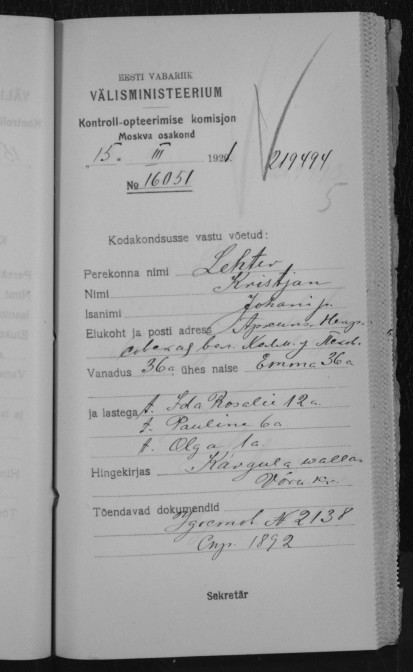 EESTI VABARIIK
VÄLISMINISTEERIUM
Kontroll-opteerimise komisjon
Moskva osakond
"15" III 1921.
219494
№ 16051
5
Kodakondsusse vastu võetud:
Perekonna nimi Lehter
Nimi Kristjan
Isanimi Johani p.
Elukoht ja posti adress
вол.
Vanadus 36 a, ühes naise Emma 36 a
ja lastega t. Ida Rosalie 12 a
t. Pauline 6 a
t. Olga 1 a
Hingekirjas Kärgula wallas
Võru kr.
Tõendavad dokumendid
Удостов № 2138
Спр. 1892
Sekretär